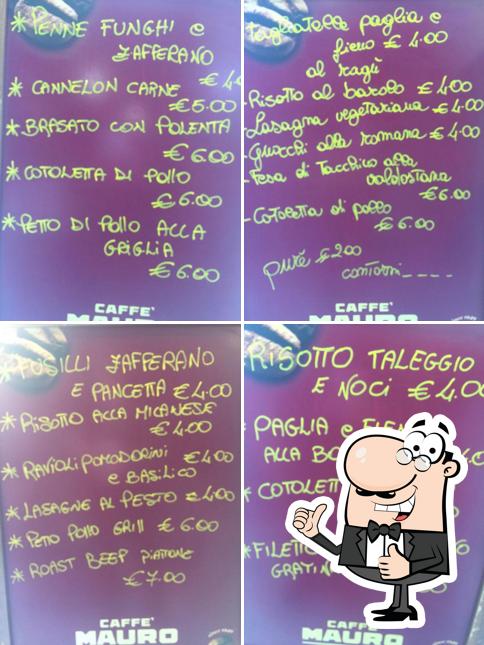 *PENNE FUNGHI e
ZAFFERANO
€4.
* CANNELON CARNE
€5.00
* BRASATO CON POLENTA
€6.00
*COTOLETTA DI POLLO
€6.00
*PETTO DI POLLO ALLA
GRIGLIA
€6.00
CAFFE'
MAURO
Tagliatelle paglia e
fieno €4.00
al ragù
-Risotto al barolo €4.00
-Lasagna vegetariana €4.00
-Gnocchi alla romana €4.00
-Fesa di Tacchino alla
valdostana
€6.00
-Cotoletta di pollo
€6.00
purè €2.00
contorni----
CAFFE'
MAURO
*FUSILLI ZAFFERANO
E PANCETTA €4.00
*RISOTTO ALLA MILANESE
€4.00
*RAVIOLI POMODORINI €4.00
e BASILICO
*LASAGNE AL PESTO €4.00
*PETTO POLLO GRILL €6.00
*ROAST BEEF PIATTONE
€7.00
CAFFE'
MAURO
RISOTTO TALEGGIO
E NOCI €4.00
PAGLIA e FIEN
ALLA BO
* COTOLETT
*FILETTO
GRATIN
CAFFE'
MAURO